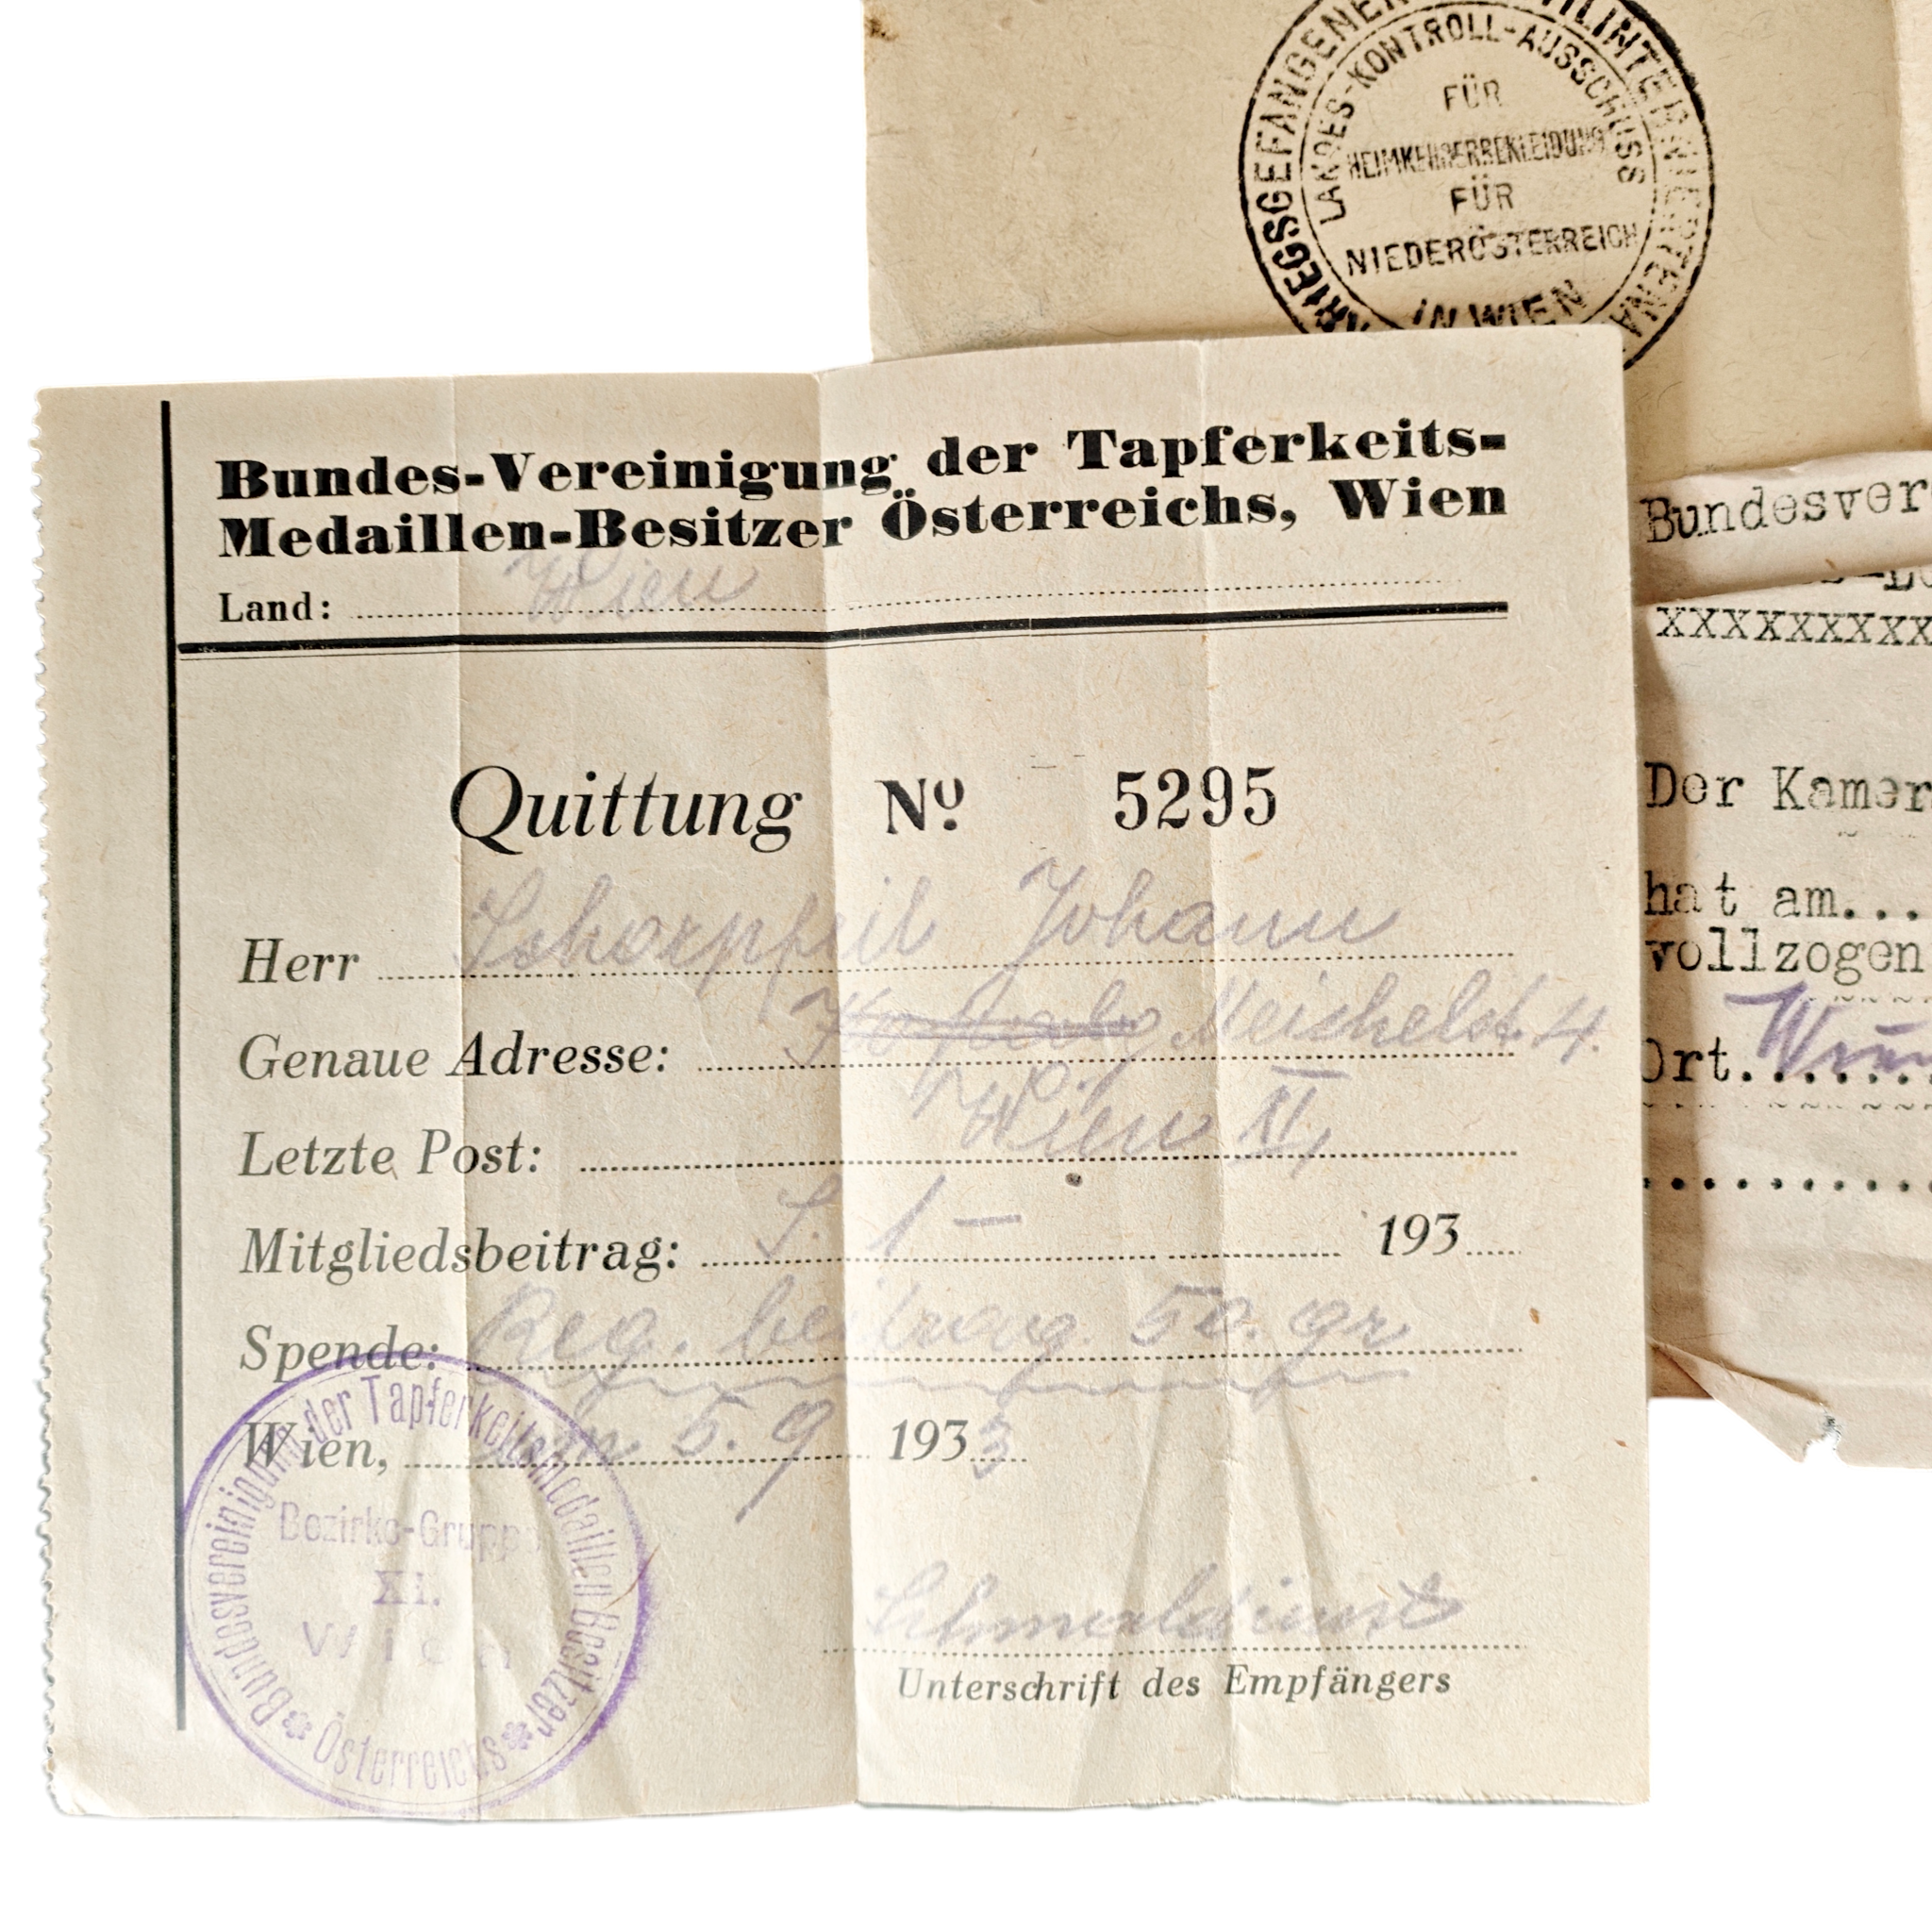 KRIEGSGEFANGENEN
ZIVILINTERNIERTENA
LANDES-KONTROLL-AUSSCHUSS
FÜR
HEIMKEHRERBEKLEIDUNG
FÜR
NIEDERÖSTERREICH
IN WIEN
Bundes-Vereinigung der Tapferkeits-
Medaillen-Besitzer Österreichs, Wien
Land: Wien
Quittung Nº 5295
Herr Schorpfeil Johann
Genaue Adresse: Meichelst. 4.
Letzte Post: Wien XI,
Mitgliedsbeitrag: S. 1 — 193
Spende: Reg. beitrag 50. gr
Wien, am 5. 9 1933
Unterschrift des Empfängers
Bundesvereinigung der Tapferkeitsmedaillen Besitzer
Österreichs
Bezirks-Gruppe
XI.
Wien
Bundesver
xxxxxxxxx
Der Kamer
hat am...
vollzogen
Ort. Wien